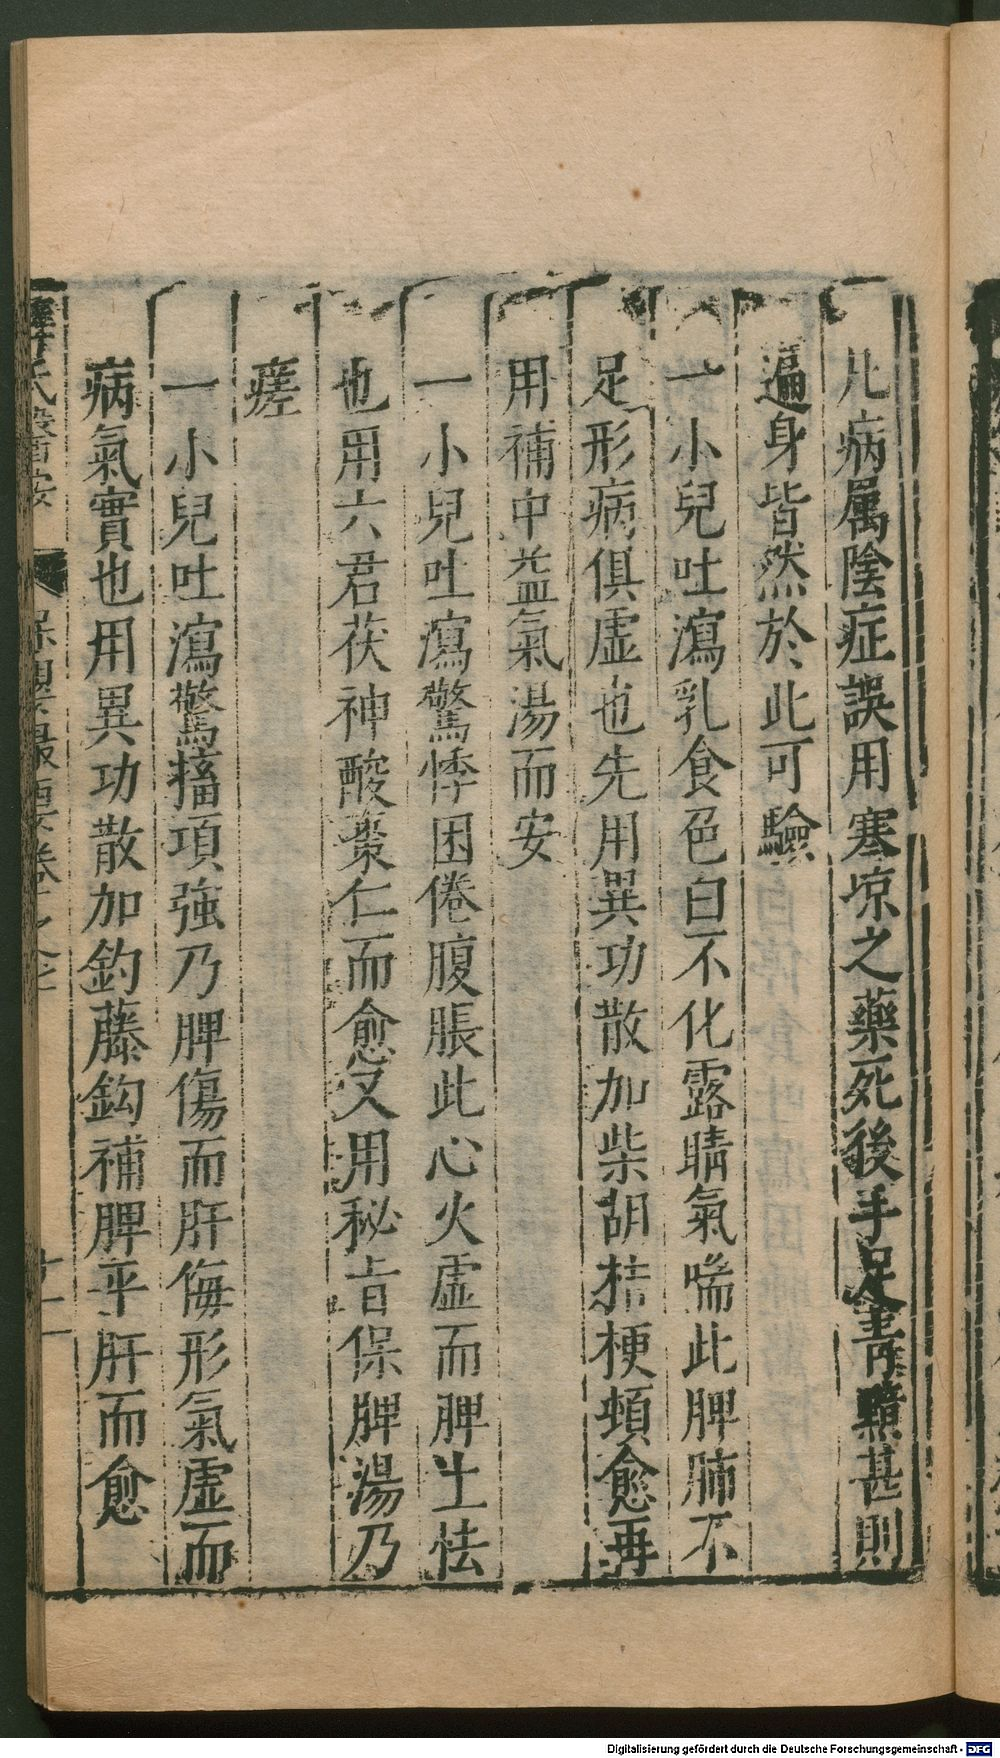 凡病属陰症誤用寒凉之藥死後手足青黯甚則
遍身皆然於此可驗
一小兒吐瀉乳食色白不化露睛氣喘此脾肺不
足形病俱虚也先用異功散加柴胡桔梗頓愈再
用補中益氣湯而安
一小兒吐瀉驚悸困倦腹脹此心火虚而脾土怯
也用六君茯神酸棗仁而愈又用秘旨保脾湯乃
瘥
一小兒吐瀉驚搐項強乃脾傷而肝侮形氣虚而
病氣實也用異功散加釣藤鈎補脾平肝而愈
薛氏醫按
保嬰撮要卷
Digitalisierung gefördert durch die Deutsche Forschungsgemeinschaft - DFG